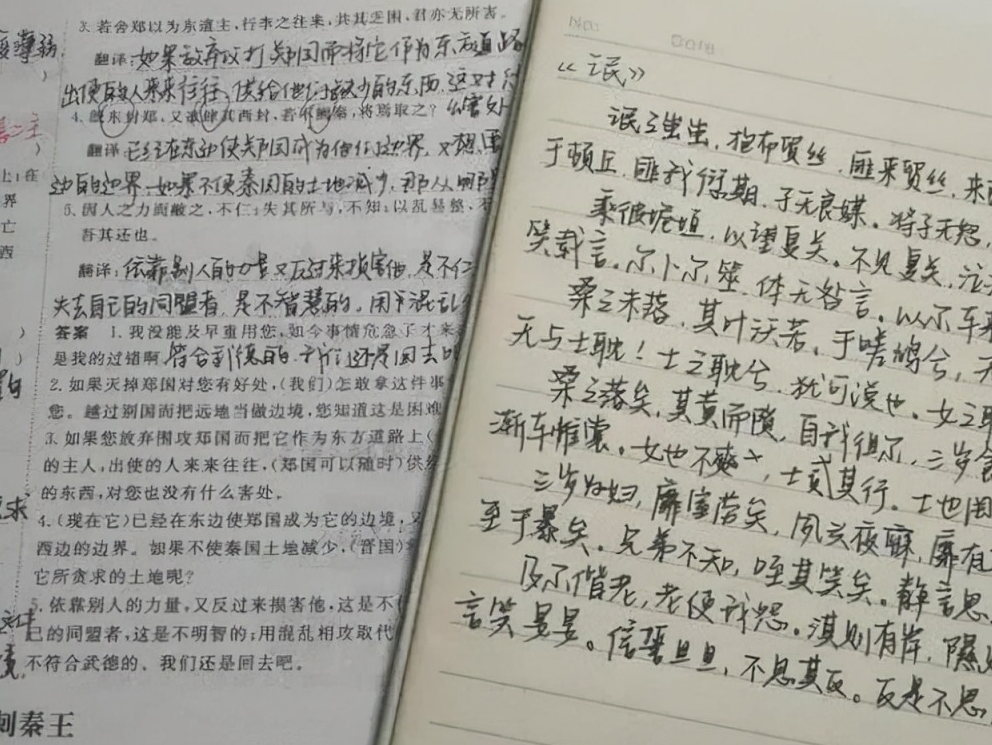 3. 若舍郑以为东道主，行李之往来，共其乏困，君亦无所害。
翻译：如果放弃攻打郑国而将它作为东方道路
出使的人来来往往，供给他们缺少的东西，这又对
么害处
4. 既东封郑，又欲肆其西封，若不阙秦，将焉取之？
翻译：已经在东边使郑国成为他的边界，又想
边的边界，如果不使秦国的土地减少，那从哪里
5. 因人之力而敝之，不仁；失其所与，不知；以乱易整，不
吾其还也。
翻译：依靠别人的力量又反过来损害他，是不仁
失去自己的同盟者，是不智慧的，用混乱
符合武德的，我们还是回去吧
答案 1. 我没能及早重用您，如今事情危急了才来
是我的过错啊
2. 如果灭掉郑国对您有好处，（我们）怎敢拿这件事
您。越过别国而把远地当做边境，您知道这是困难
3. 如果您放弃围攻郑国而把它作为东方道路上（
的主人，出使的人来来往往，（郑国可以随时）供给
的东西，对您也没有什么害处。
4.（现在它）已经在东边使郑国成为它的边境，又
西边的边界。如果不使秦国土地减少，（晋国）
它所贪求的土地呢？
5. 依靠别人的力量，又反过来损害他，这是不
己的同盟者，这是不明智的；用混乱相攻取代
不符合武德的、我们还是回去吧。
刺秦王
《氓》
氓之蚩蚩，抱布贸丝，匪来贸丝，来
于顿丘，匪我愆期，子无良媒。将子无怒，
乘彼垝垣，以望复关。不见复关，泣
笑载言。尔卜尔筮，体无咎言。以尔车来
桑之未落，其叶沃若。于嗟鸠兮，无
无与士耽！士之耽兮，犹可说也。女之耽
桑之落矣，其黄而陨，自我徂尔，三岁食
渐车帷裳。女也不爽，士贰其行。士也罔
三岁为妇，靡室劳矣，夙兴夜寐，靡有
至于暴矣。兄弟不知，咥其笑矣。静言思
及尔偕老，老使我怨。淇则有岸，隰
言笑晏晏。信誓旦旦，不思其反。反是不思，